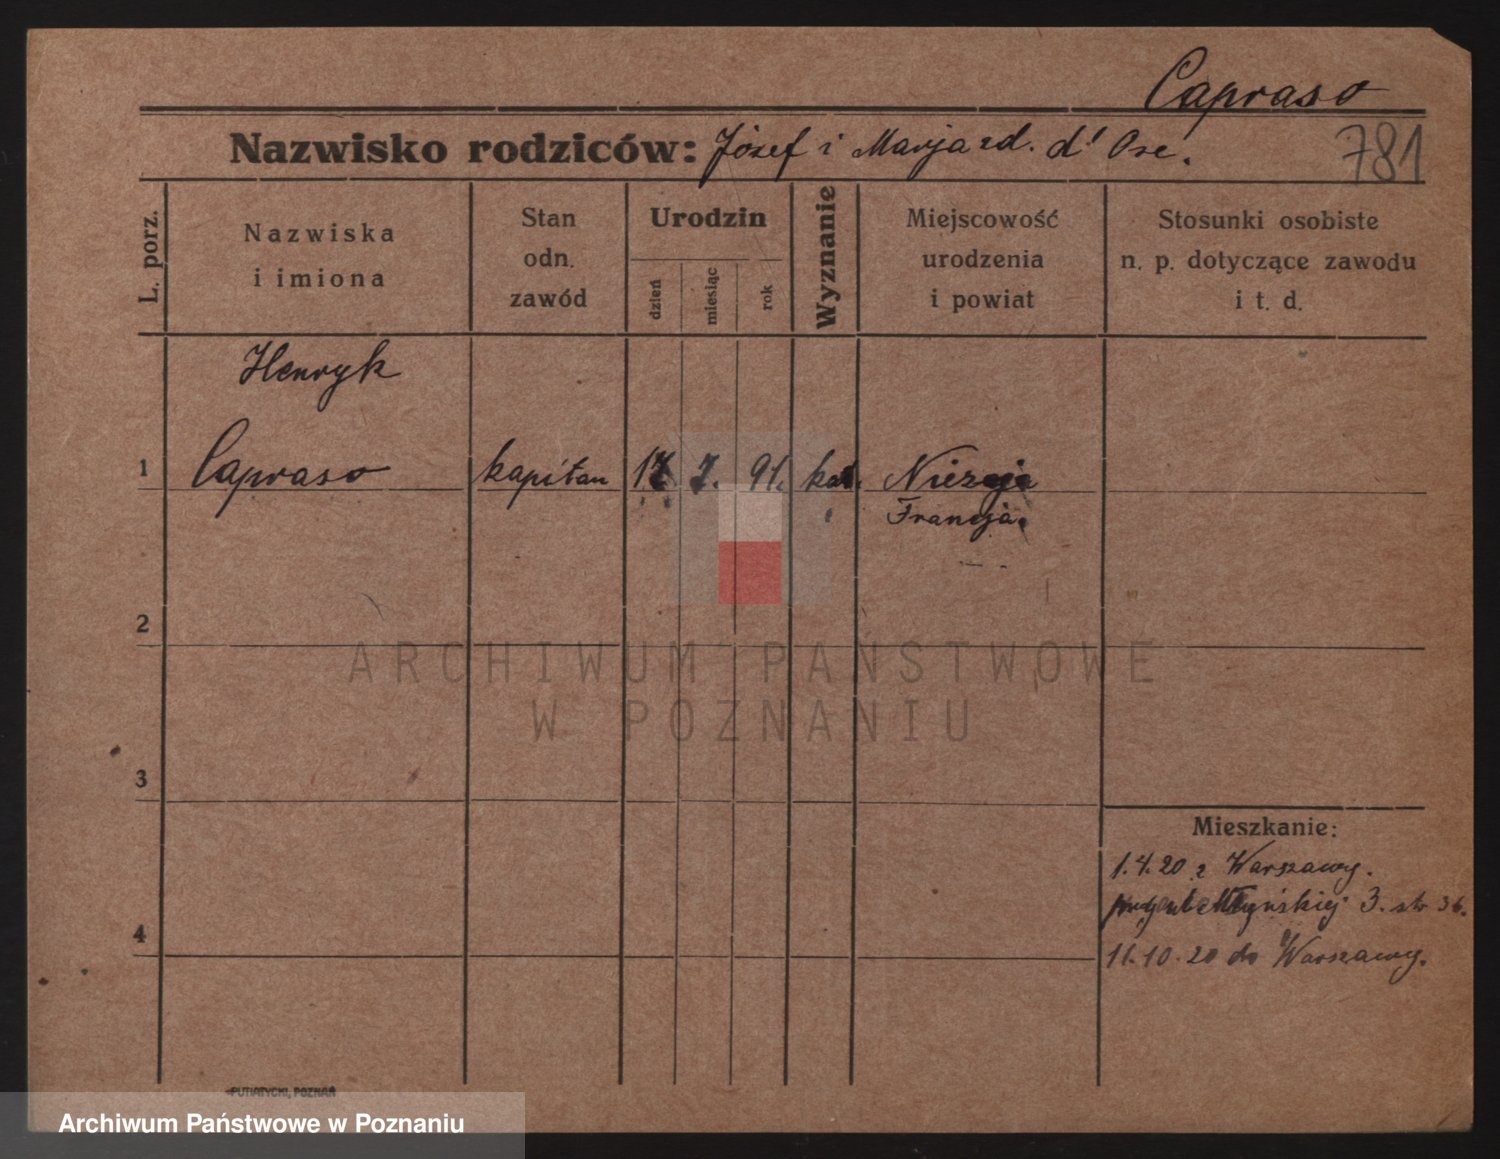 Capraso
Nazwisko rodziców: Józef i Marja zd. d' Ose.
781
L. porz.
Nazwiska
i imiona
Stan
odn.
zawód
Urodzin
dzień
miesiąc
rok
Wyznanie
Miejscowość
urodzenia
i powiat
Stosunki osobiste
n. p. dotyczące zawodu
i t. d.
Henryk
1 Capraso kapitan 17 7. 91. kat.
Francja.
2
3
4
Mieszkanie:
1.4.20 z Warszawy.
3. str 36.
11.10.20 do Warszawy.
PUTIATYCKI, POZNAŃ
ARCHIWUM PAŃSTWOWE
W POZNANIU
Archiwum Państwowe w Poznaniu